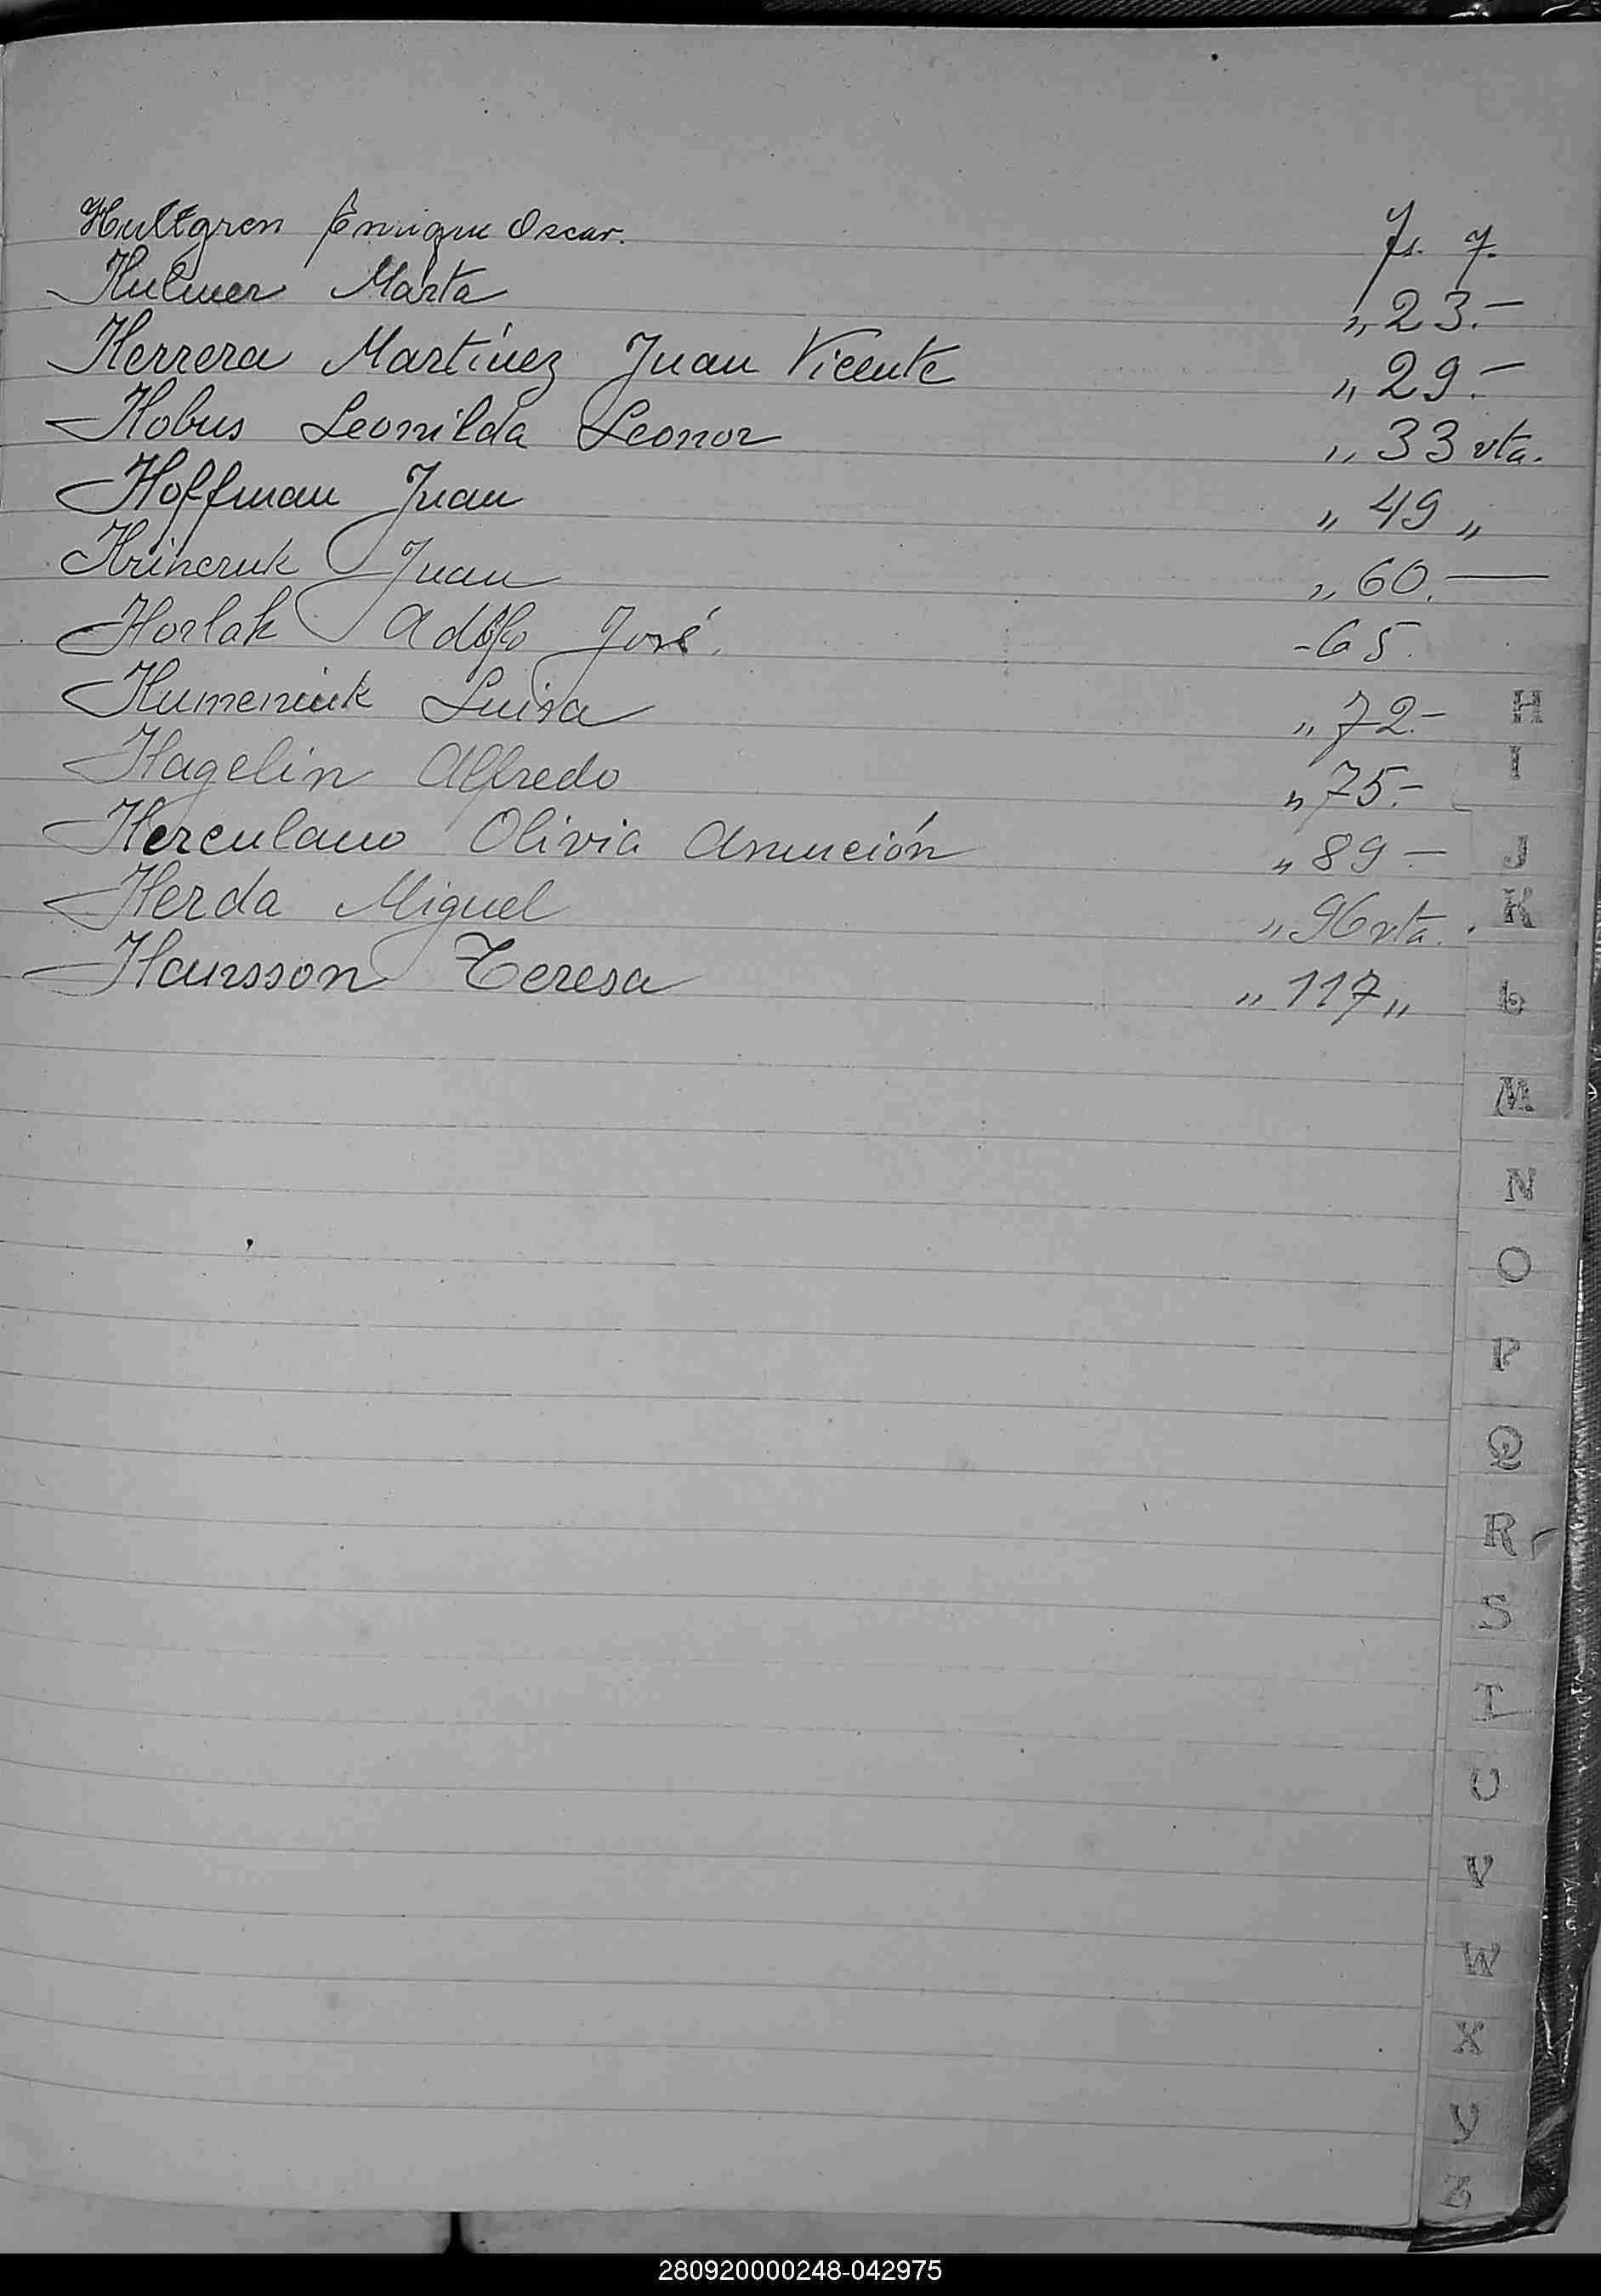 Hultgren Enrique Oscar. fs. 7.
Hulmer Marta „ 23.-
Herrera Martínez Juan Vicente „ 29.-
Hobus Leonilda Leonor „ 33 vta.
Hoffman Juan „ 49 „
Hrincruk Juan „ 60. —
Horlak Adolfo José. - 65.
Humeniuk Luisa „ 72.-
Hagelin Alfredo „ 75.-
Herculano Olivia Asunción „ 89 -
Herda Miguel „ 96 vta.
Hansson Teresa „ 117 „
H
I
J
K
L
M
N
O
P
Q
R
S
T
U
V
W
X
Y
Z
280920000248-042975